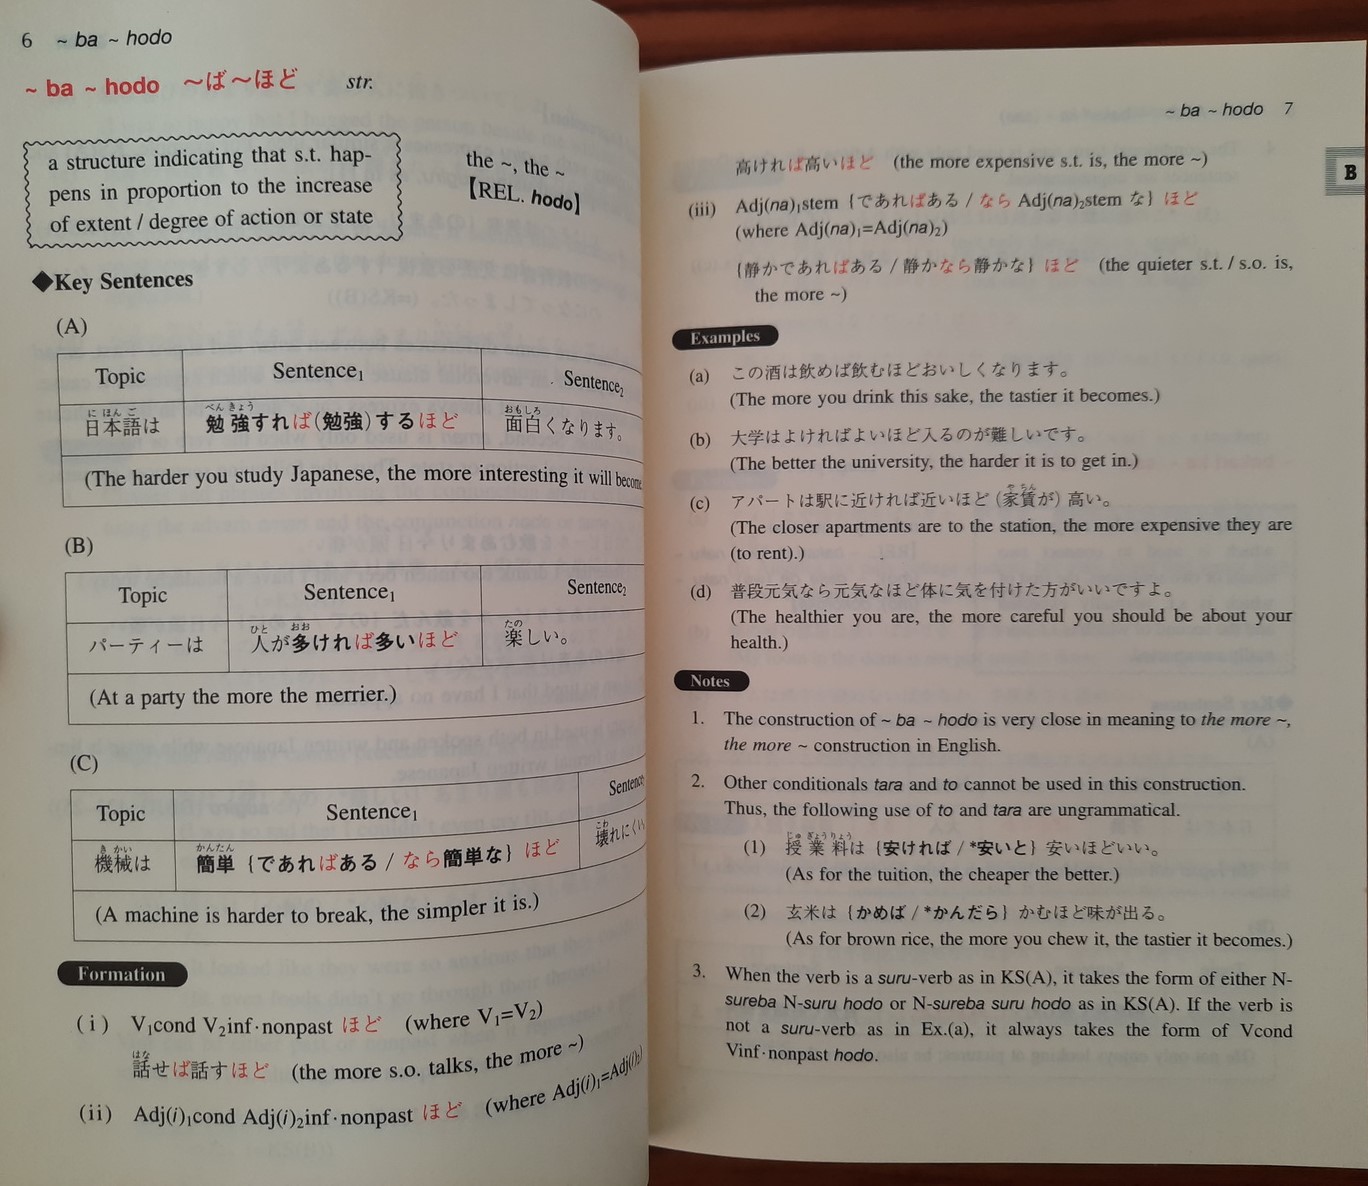 6 ~ ba ~ hodo
~ ba ~ hodo ～ば～ほど str.
a structure indicating that s.t. hap-
pens in proportion to the increase
of extent / degree of action or state
the ~, the ~
【REL. hodo】
◆Key Sentences
(A)
Topic Sentence₁ Sentence₂
にほんご べんきょう おもしろ
日本語は 勉強すれば(勉強)するほど 面白くなります。
(The harder you study Japanese, the more interesting it will become
(B)
Topic Sentence₁ Sentence₂
ひと おお たの
パーティーは 人が多ければ多いほど 楽しい。
(At a party the more the merrier.)
(C)
Topic Sentence₁ Sentence
きかい かんたん こわ
機械は 簡単 {であればある / なら簡単な} ほど 壊れにくい
(A machine is harder to break, the simpler it is.)
Formation
(i) V₁cond V₂inf·nonpast ほど (where V₁=V₂)
はな
話せば話すほど (the more s.o. talks, the more ~)
(ii) Adj(i)₁cond Adj(i)₂inf·nonpast ほど (where Adj(i)₁=Adj(i)₂)
~ ba ~ hodo 7
B
高ければ高いほど (the more expensive s.t. is, the more ~)
(iii) Adj(na)₁stem {であればある / なら Adj(na)₂stem な} ほど
(where Adj(na)₁=Adj(na)₂)
{静かであればある / 静かなら静かな} ほど (the quieter s.t. / s.o. is,
the more ~)
Examples
(a) この酒は飲めば飲むほどおいしくなります。
(The more you drink this sake, the tastier it becomes.)
(b) 大学はよければよいほど入るのが難しいです。
(The better the university, the harder it is to get in.)
やちん
(c) アパートは駅に近ければ近いほど (家賃が) 高い。
(The closer apartments are to the station, the more expensive they are
(to rent).)
(d) 普段元気なら元気なほど体に気を付けた方がいいですよ。
(The healthier you are, the more careful you should be about your
health.)
Notes
1. The construction of ~ ba ~ hodo is very close in meaning to the more ~,
the more ~ construction in English.
2. Other conditionals tara and to cannot be used in this construction.
Thus, the following use of to and tara are ungrammatical.
じゅぎょうりょう
(1) 授業料は {安ければ / *安いと} 安いほどいい。
(As for the tuition, the cheaper the better.)
(2) 玄米は {かめば / *かんだら} かむほど味が出る。
(As for brown rice, the more you chew it, the tastier it becomes.)
3. When the verb is a suru-verb as in KS(A), it takes the form of either N-
sureba N-suru hodo or N-sureba suru hodo as in KS(A). If the verb is
not a suru-verb as in Ex.(a), it always takes the form of Vcond
Vinf·nonpast hodo.